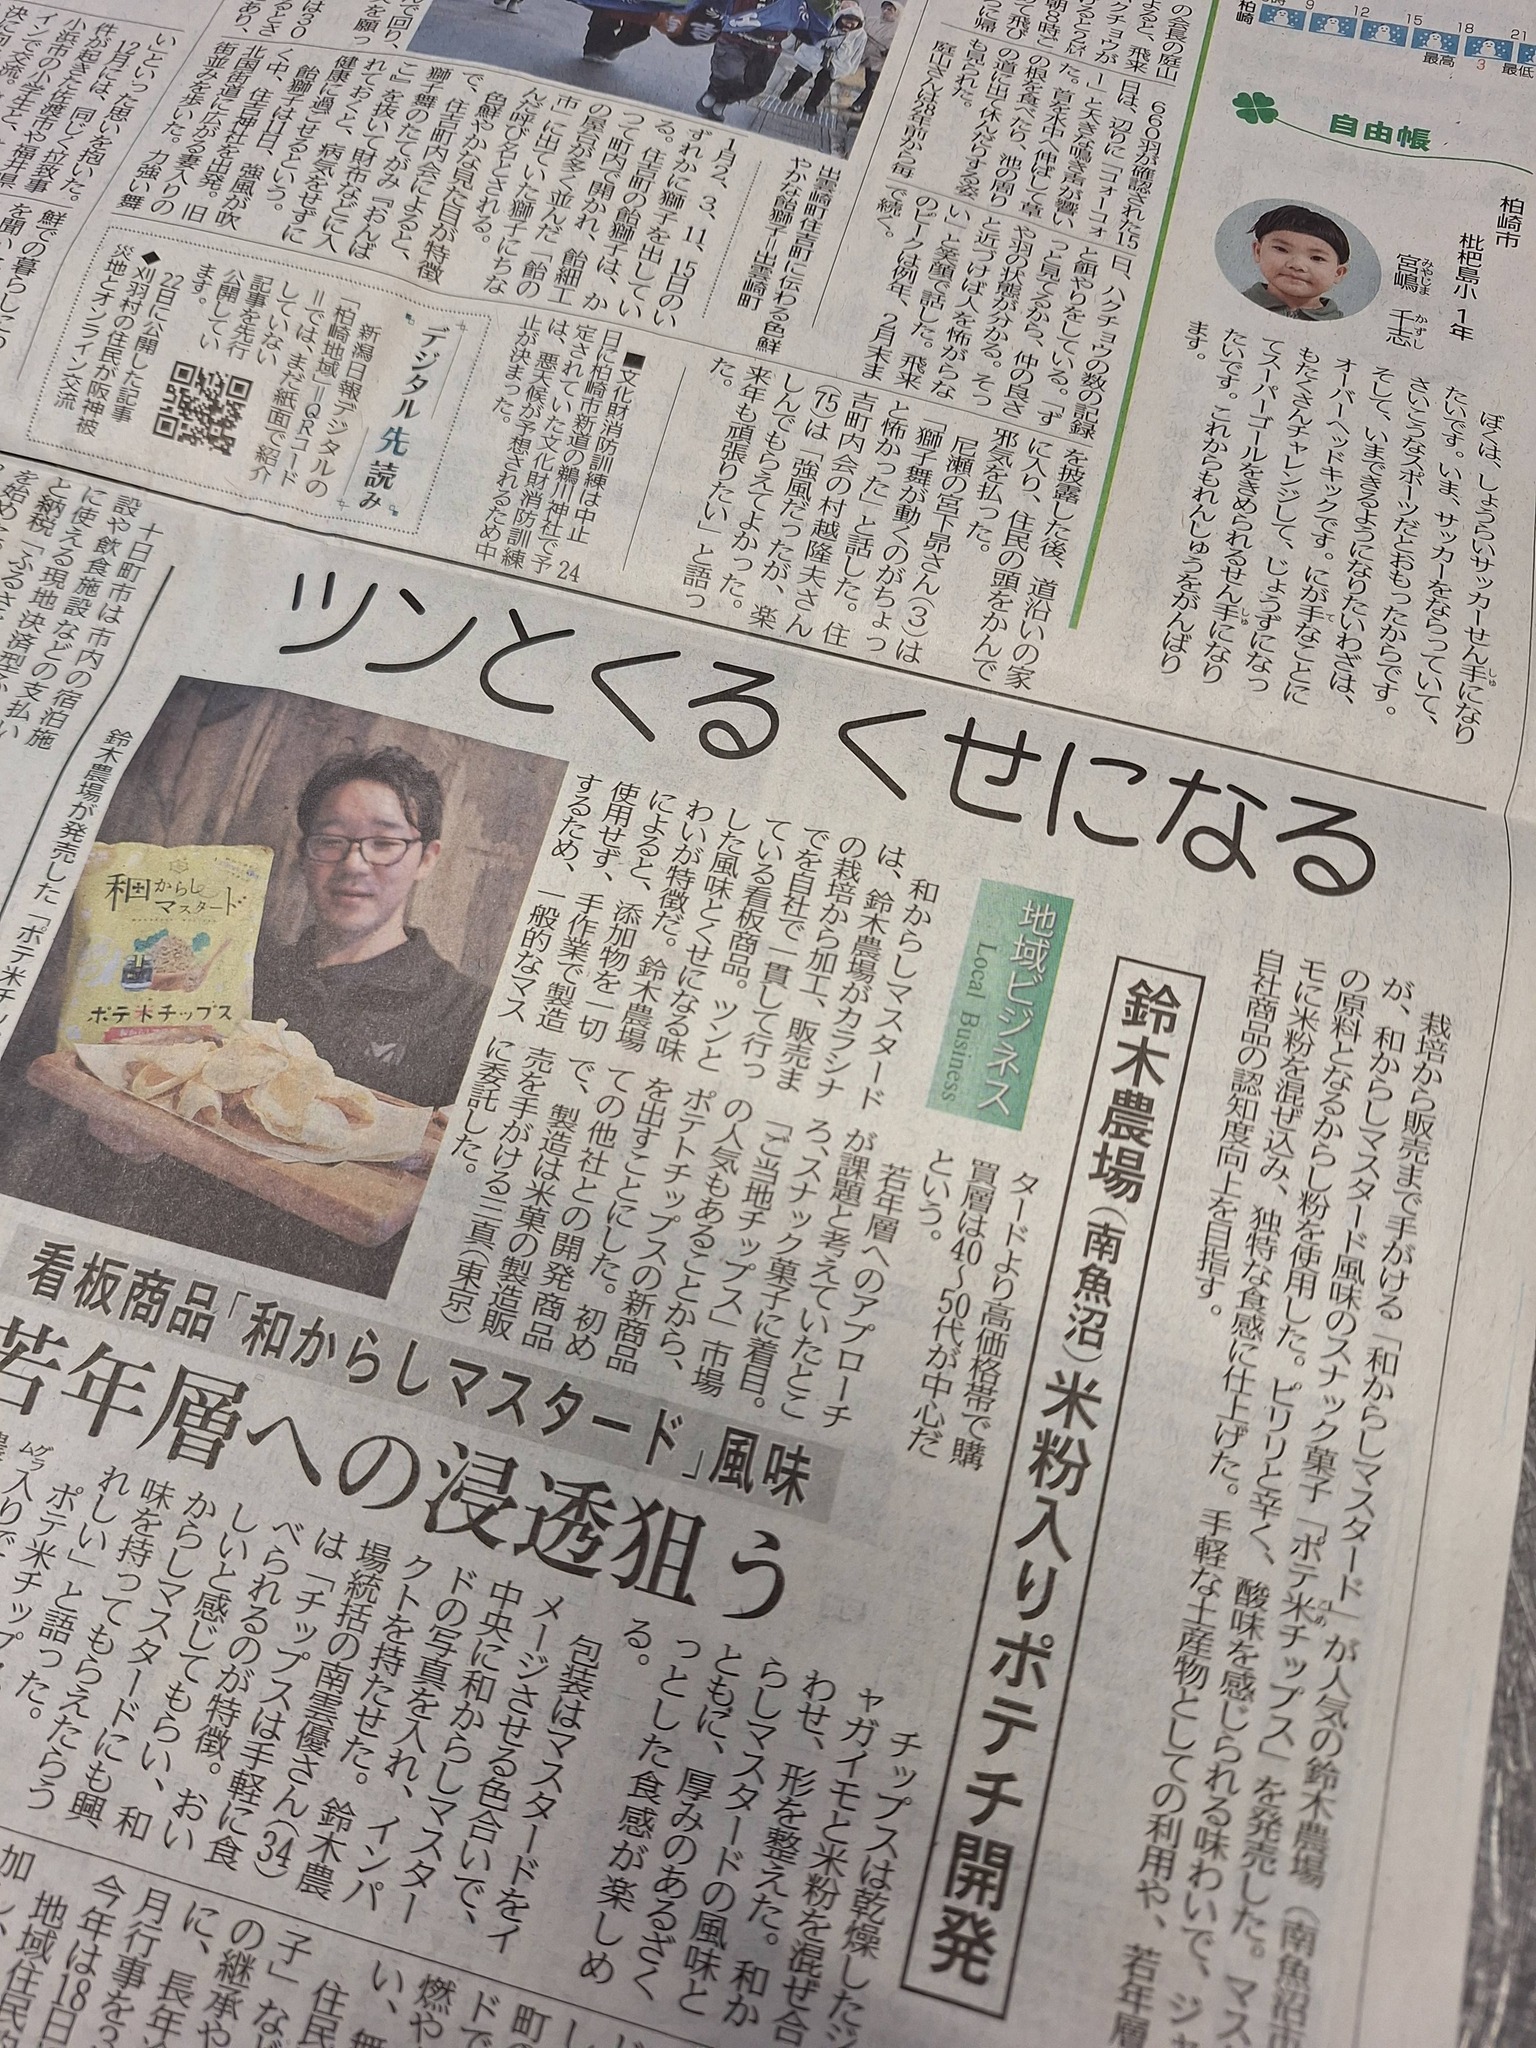 柏崎
9
12
15
18
21
最高
3
最低
自由帳
柏崎市
枇杷島小1年
宮嶋 千志
みやじま かずし
ぼくは、しょうらいサッカーせん手になり
たいです。いま、サッカーをならっていて、
さいこうなスポーツだとおもったからです。
そして、いまできるようになりたいわざは、
オーバーヘッドキックです。にが手なことに
もたくさんチャレンジして、じょうずになっ
てスーパーゴールをきめられるせん手になり
たいです。これからもれんしゅうをがんばり
ます。
の会長の庭山
660羽が確認された15
日は、辺りに「コォーコォ
ー」と大きな鳴き声が響い
た。首を水中へ伸ばして草
の根を食べたり、池の周り
の道に出て休んだりする姿
も見られた。
庭山さんは28年前から毎
日、ハクチョウの数の記録
と餌やりをしている。「ず
っと見てるから、仲の良さ
や羽の状態が分かる。そっ
と近づけば人を怖がらな
い」と笑顔で話した。飛来
のピークは例年、2月末ま
で続く。
出雲崎町住吉町に伝わる色鮮
やかな飴獅子=出雲崎町
1月2、3、11、15日のい
ずれかに獅子を出してい
る。住吉町の飴獅子は、か
つて町内で開かれ、飴細工
の屋台が多く並んだ「飴の
市」に出ていた獅子にちな
んだ呼び名とされる。
色鮮やかな見た目が特徴
で、住吉町内会によると、
獅子舞のたてがみ「おんば
こ」を抜いて財布などに入
れておくと、病気をせずに
健康に過ごせるという。
飴獅子は1日、強風が吹
く中、住吉神社を出発。旧
北国街道に広がる妻入りの
街並みを歩いた。力強い舞
を披露した後、道沿いの家
に入り、住民の頭をかんで
邪気を払った。
尼瀬の宮下昴さん(3)は
「獅子舞が動くのがちょっ
と怖かった」と話した。住
吉町内会の村越隆夫さん
(75)は「強風だったが、楽
しんでもらえてよかった。
来年も頑張りたい」と語っ
た。
■文化財消防訓練は中止 24
日に柏崎市新道の鵜川神社で予
定されていた文化財消防訓練
は、悪天候が予想されるため中
止が決まった。
デジタル先読み
新潟日報デジタルの
「柏崎地域」=QRコード
=では、まだ紙面で紹介
していない
記事を先行
公開してい
ます。
◆刈羽村の住民が阪神被
災地とオンライン交流
22日に公開した記事
い」といった思いを抱いた。
12月には、同じく拉致事
件が起きた佐渡市や福井県
小浜市の小学生と、
十日町市は市内の宿泊施
設や飲食施設などの支払い
に使える現地決済型ふるさ
と納税「ふるさ
ツンとくる くせになる
地域ビジネス
Local Business
鈴木農場(南魚沼)米粉入りポテチ開発
栽培から販売まで手がける「和からしマスタード」が人気の鈴木農場(南魚沼市)
が、和からしマスタード風味のスナック菓子「ポテ米チップス」を発売した。マス
の原料となるからし粉を使用した。ピリリと辛く、酸味を感じられる味わいで、ジャ
モに米粉を混ぜ込み、独特な食感に仕上げた。手軽な土産物としての利用や、若年層
自社商品の認知度向上を目指す。
和からしマスタード
は、鈴木農場がカラシナ
の栽培から加工、販売ま
でを自社で一貫して行っ
ている看板商品。ツンと
した風味とくせになる味
わいが特徴だ。鈴木農場
によると、添加物を一切
使用せず、手作業で製造
するため、一般的なマス
タードより高価格帯で購
買層は40~50代が中心だ
という。
若年層へのアプローチ
が課題と考えていたとこ
ろ、スナック菓子に着目。
「ご当地チップス」市場
の人気もあることから、
ポテトチップスの新商品
を出すことにした。初め
ての他社との開発商品
で、製造は米菓の製造販
売を手がける三真(東京)
に委託した。
チップスは乾燥したジ
ャガイモと米粉を混ぜ合
わせ、形を整えた。和か
らしマスタードの風味と
ともに、厚みのあるざく
っとした食感が楽しめ
る。
包装はマスタードをイ
メージさせる色合いで、
中央に和からしマスター
ドの写真を入れ、インパ
クトを持たせた。鈴木農
場統括の南雲優さん(34)
は「チップスは手軽に食
べられるのが特徴。おい
しいと感じてもらい、和
からしマスタードにも興
味を持ってもらえたらう
れしい」と語った。
ポテ米チップス
看板商品「和からしマスタード」風味
若年層への浸透狙う
鈴木農場が発売した「ポテ米チ
和からし
マスタード
ポテ米チップス